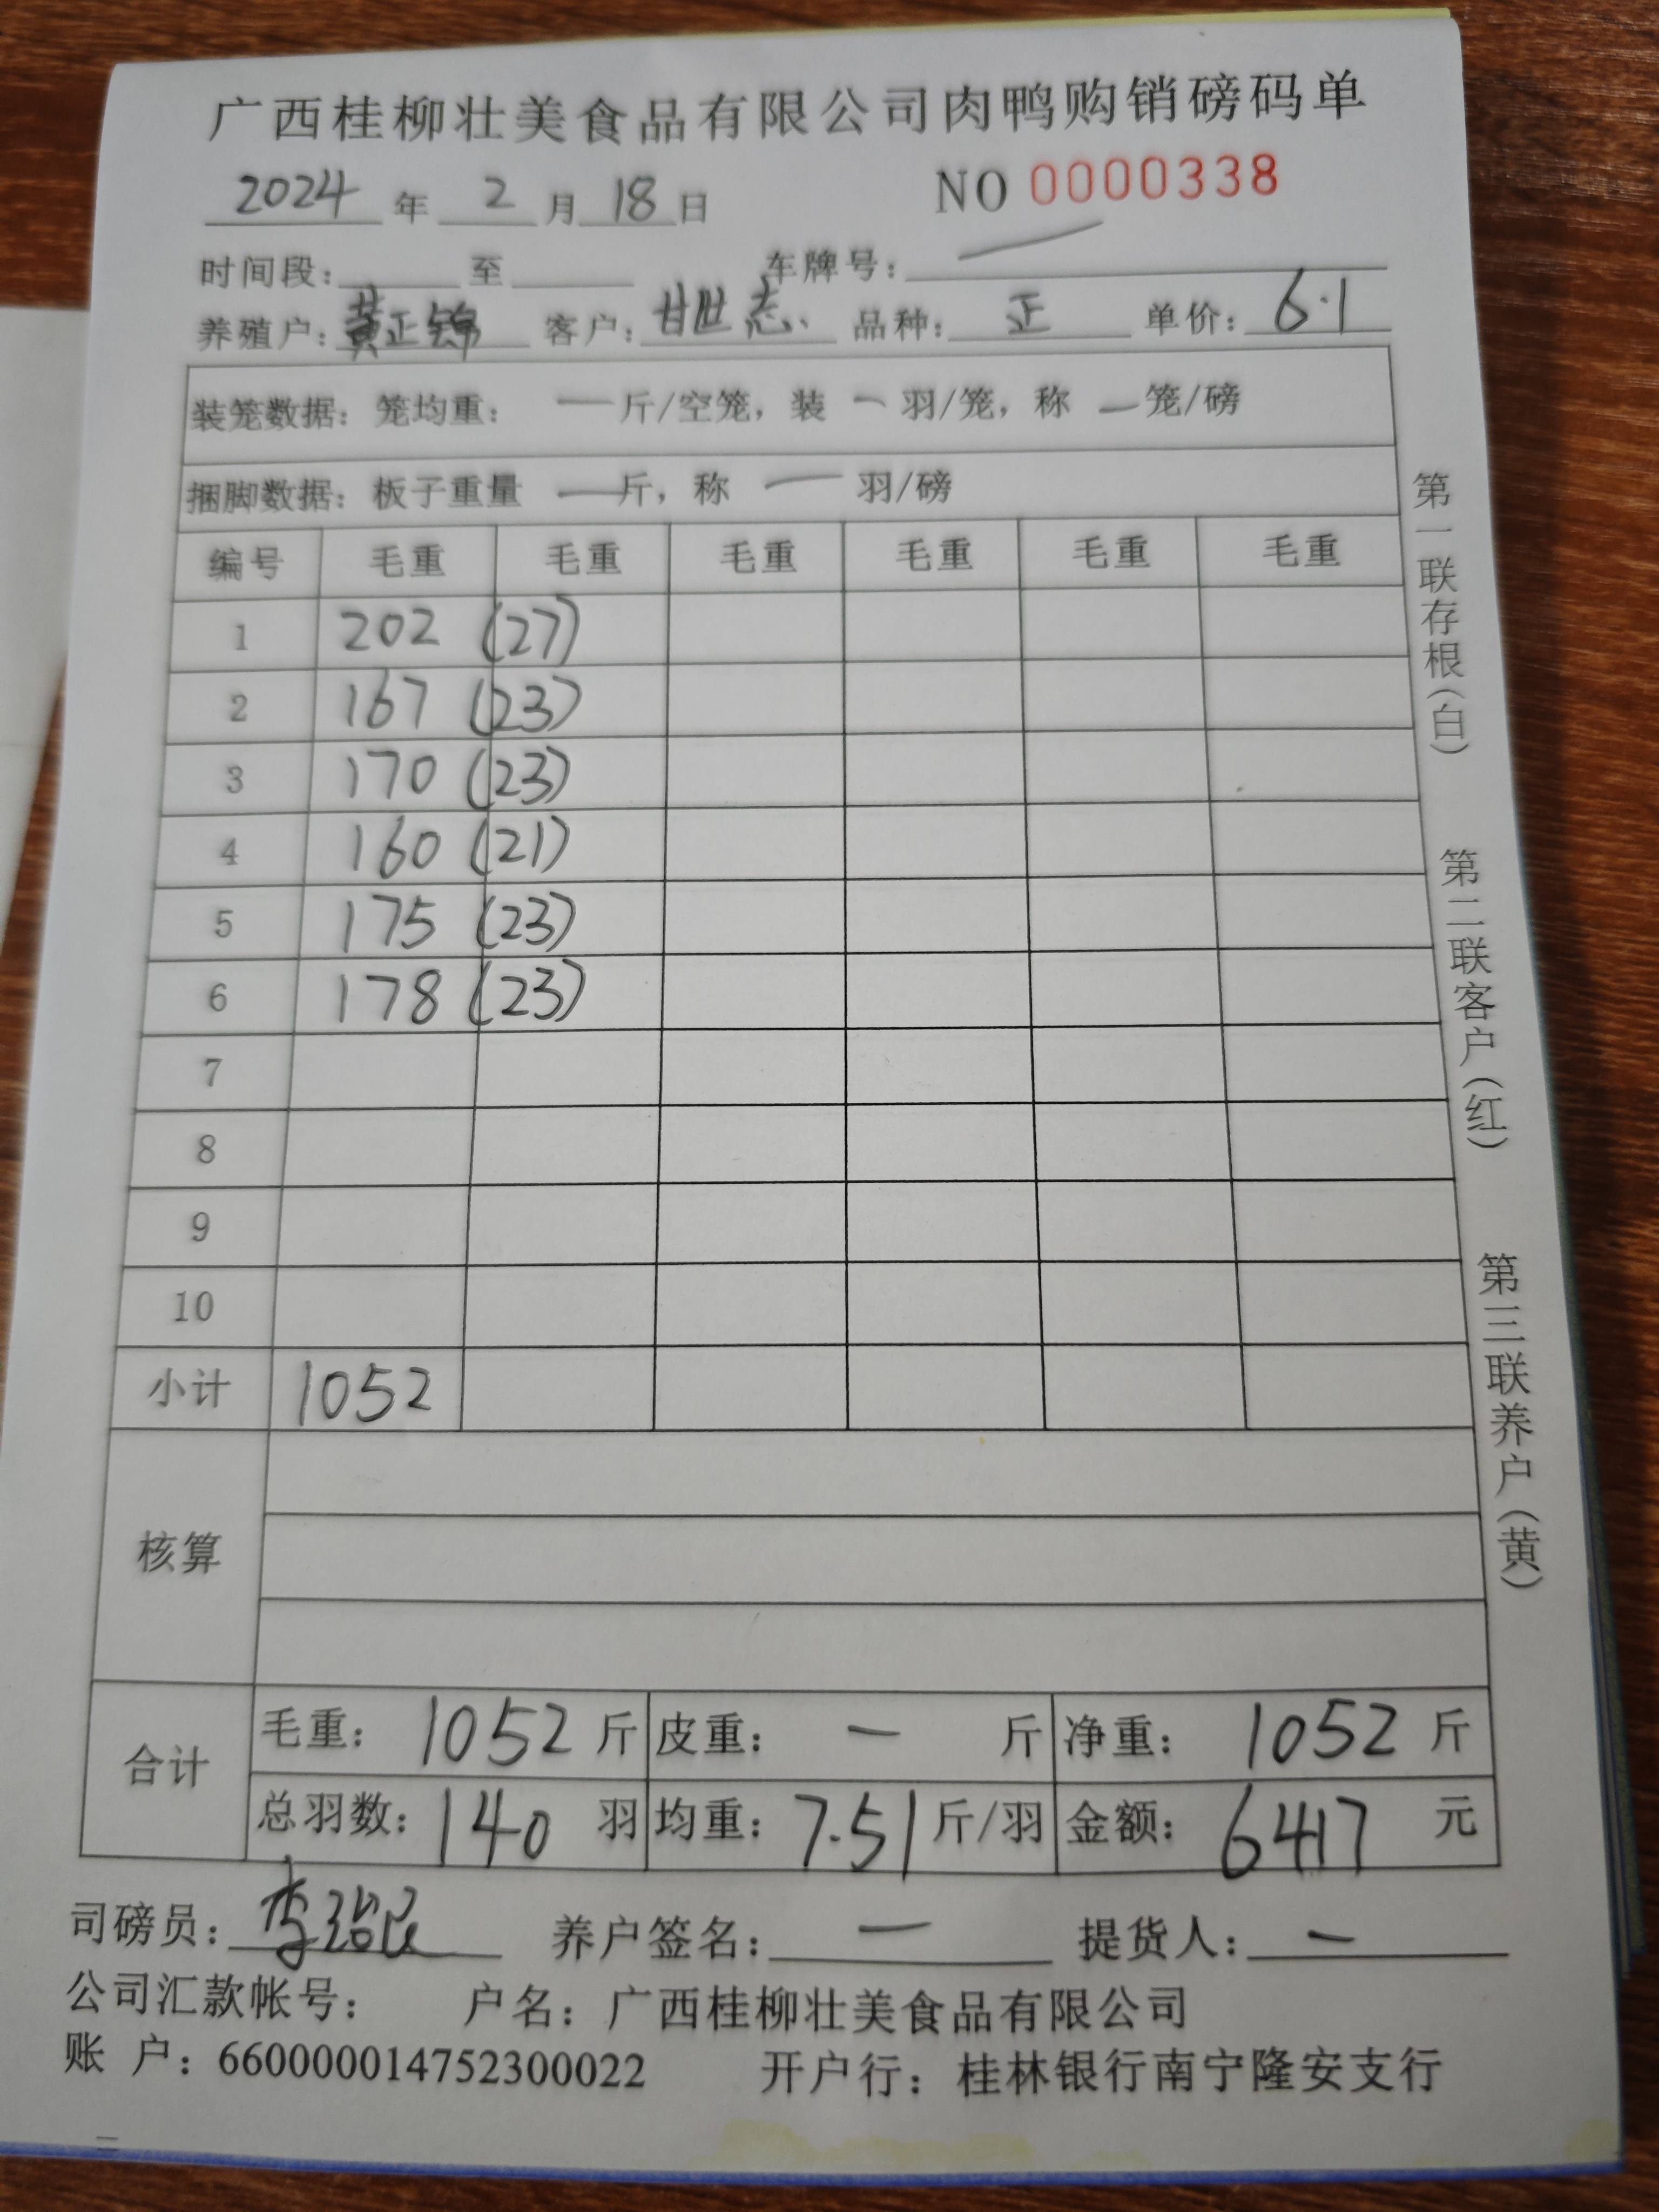 广西桂柳壮美食品有限公司肉鸭购销磅码单
2024年2月18日 NO 0000338
时间段: 至 车牌号: —
养殖户: 黄正锦 客户: 甘世志 品种: 正 单价: 6.1
装笼数据: 笼均重: —斤/空笼, 装 —羽/笼, 称 —笼/磅
捆脚数据: 板子重量 —斤, 称 —羽/磅
编号 毛重 毛重 毛重 毛重 毛重 毛重
1 202 (27)
2 167 (23)
3 170 (23)
4 160 (21)
5 175 (23)
6 178 (23)
7
8
9
10
小计 1052
核算
合计 毛重: 1052斤 皮重: —斤 净重: 1052斤
总羽数: 140羽 均重: 7.51斤/羽 金额: 6417元
司磅员: 养户签名: — 提货人: —
公司汇款帐号: 户名: 广西桂柳壮美食品有限公司
账 户: 660000014752300022 开户行: 桂林银行南宁隆安支行
第一联存根(白)
第二联客户(红)
第三联养户(黄)